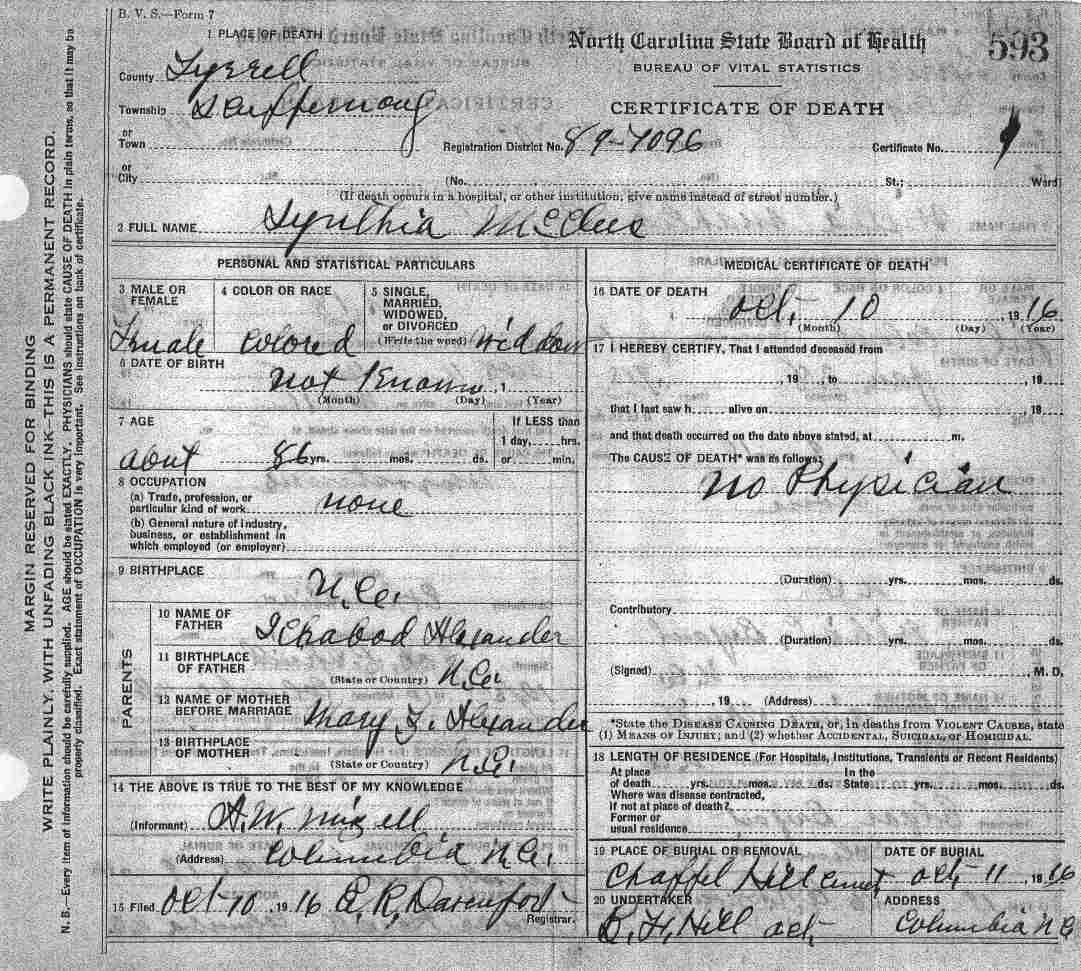 B. V. S.—Form 7
1 PLACE OF DEATH
County Tyrrell
Township Scuppernong
or Town
or City
North Carolina State Board of Health
BUREAU OF VITAL STATISTICS
CERTIFICATE OF DEATH
593
Registration District No. 89-7096 Certificate No. 9
(No. St.; Ward
(If death occurs in a hospital, or other institution, give name instead of street number.)
2 FULL NAME Synthia McClees
PERSONAL AND STATISTICAL PARTICULARS
3 MALE OR FEMALE
Female
4 COLOR OR RACE
Colored
5 SINGLE, MARRIED, WIDOWED, or DIVORCED
(Write the word) Widdow
6 DATE OF BIRTH
not Known, 1
(Month) (Day) (Year)
7 AGE If LESS than
1 day, hrs.
aout 86 yrs. mos. ds. or min.
8 OCCUPATION
(a) Trade, profession, or
particular kind of work none
(b) General nature of industry,
business, or establishment in
which employed (or employer)
9 BIRTHPLACE
N.C.
PARENTS
10 NAME OF FATHER
Ichabod Alexander
11 BIRTHPLACE OF FATHER
(State or Country) N.C.
12 NAME OF MOTHER BEFORE MARRIAGE
Mary L. Alexander
13 BIRTHPLACE OF MOTHER
(State or Country) N.C.
14 THE ABOVE IS TRUE TO THE BEST OF MY KNOWLEDGE
(Informant) A.W. Mizell
(Address) Columbia N.C.
15 Filed Oct 10, 1916 E. R. Davenport
Registrar.
MEDICAL CERTIFICATE OF DEATH
16 DATE OF DEATH
Oct, 10, 1916
(Month) (Day) (Year)
17 I HEREBY CERTIFY, That I attended deceased from
, 19 , to , 19
that I last saw h alive on , 19
and that death occurred on the date above stated, at m.
The CAUSE OF DEATH* was as follows:
no Physician
(Duration) yrs. mos. ds.
Contributory
(Duration) yrs. mos. ds.
(Signed) M. D.
, 19 (Address)
*State the DISEASE CAUSING DEATH, or, in deaths from VIOLENT CAUSES, state
(1) MEANS OF INJURY; and (2) whether ACCIDENTAL, SUICIDAL, or HOMICIDAL.
18 LENGTH OF RESIDENCE (For Hospitals, Institutions, Transients or Recent Residents)
At place In the
of death yrs. mos. ds. State yrs. mos. ds.
Where was disease contracted,
If not at place of death?
Former or
usual residence
19 PLACE OF BURIAL OR REMOVAL DATE OF BURIAL
Chappel Hill Oct, 11, 1916
20 UNDERTAKER ADDRESS
B. H. Hill act, Columbia N C
MARGIN RESERVED FOR BINDING
WRITE PLAINLY, WITH UNFADING BLACK INK—THIS IS A PERMANENT RECORD.
N. B.—Every item of information should be carefully supplied. AGE should be stated EXACTLY. PHYSICIANS should state CAUSE OF DEATH in plain terms, so that it may be
properly classified. Exact statement of OCCUPATION is very important. See instructions on back of certificate.